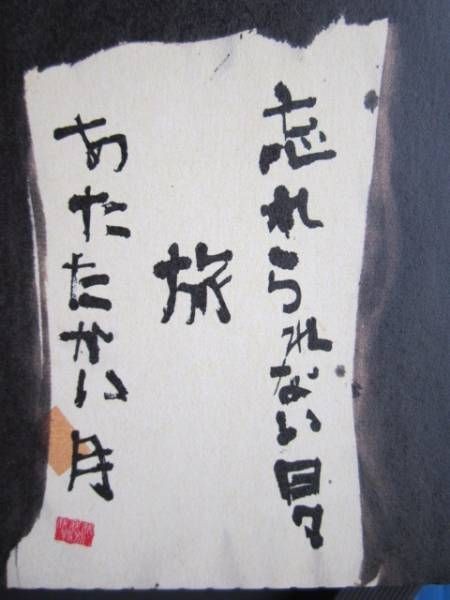 忘れられない日々
旅
あたたかい月